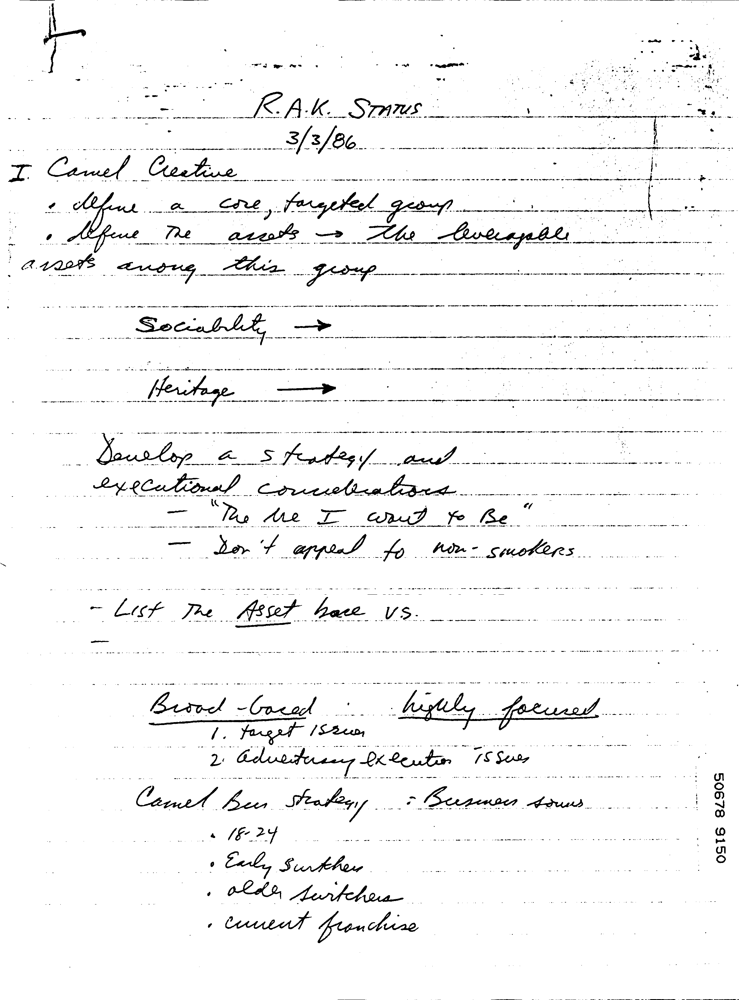 R.A.K. STATUS
3/3/86
I. Camel Creative
• define a core, targeted group
• define the assets → the leveragable
assets among this group
Sociability →
Heritage →
Develop a strategy and
executional considerations
– "The Me I want to Be"
– Don't appeal to non-smokers
– List The Asset base vs.
–
Broad-based highly focused
1. target issues
2. advertising execution issues
Camel Bus strategy : Business
• 18-24
• Early Switchers
• older switchers
• current franchise
50678 9150